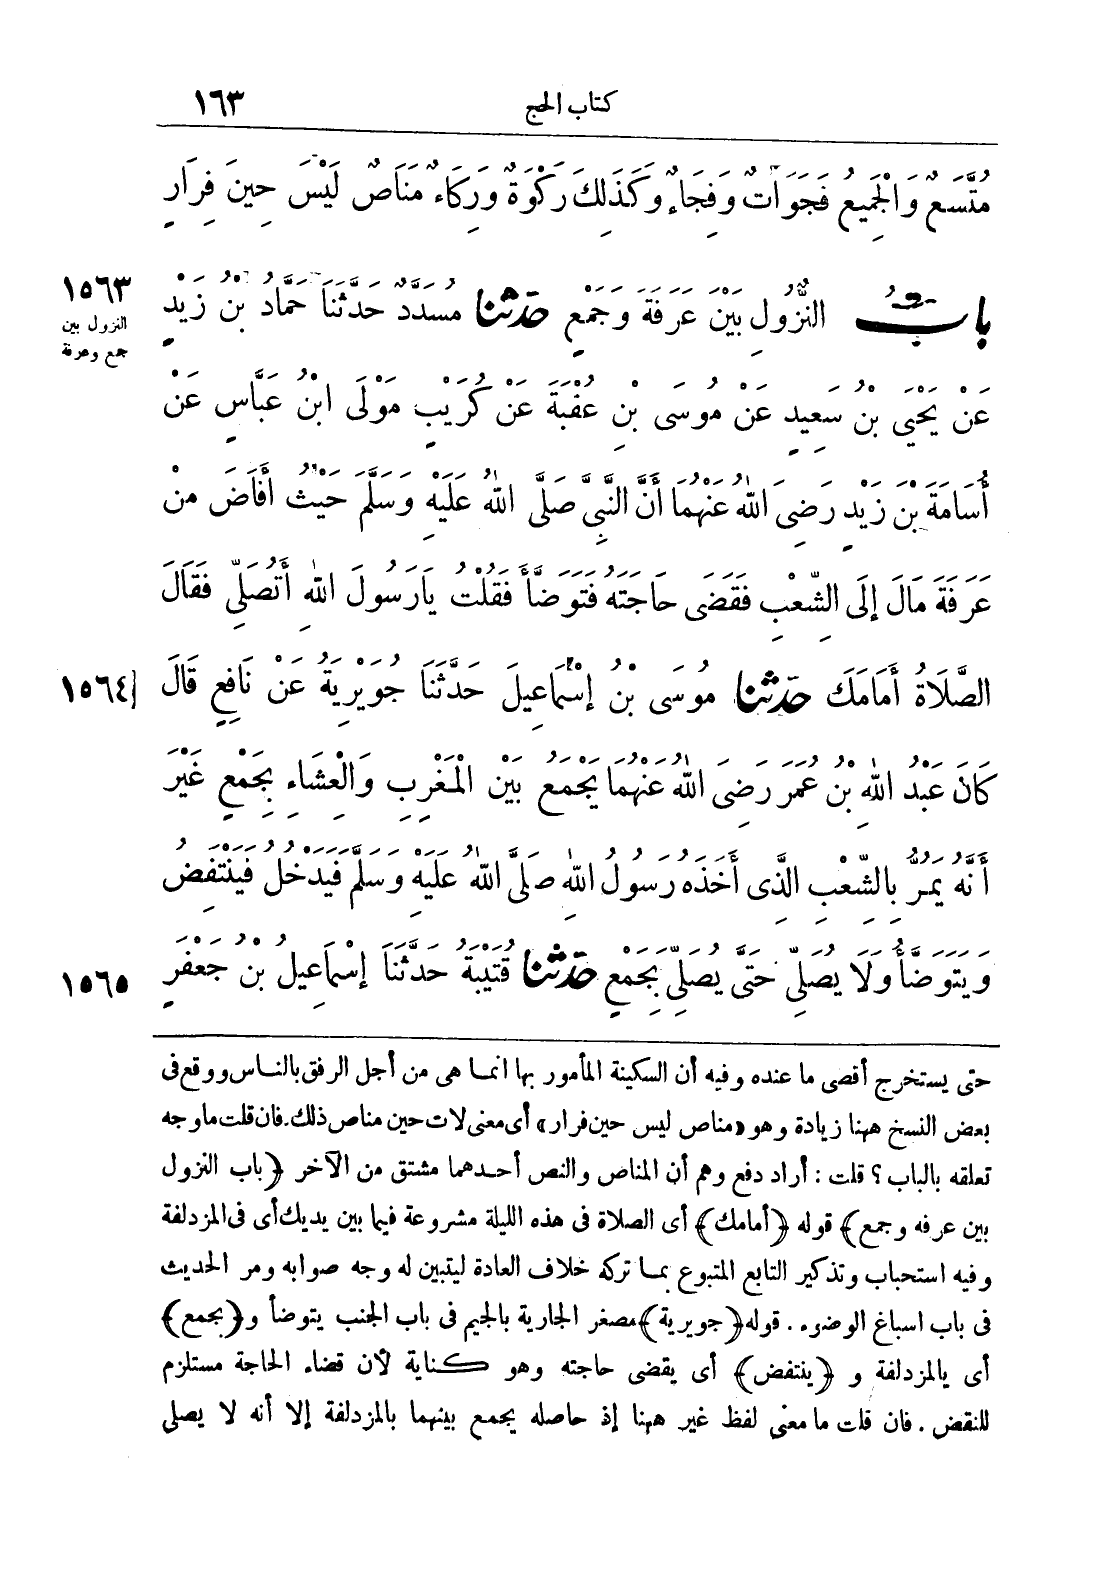 كتاب الحج
١٦٣
مُتَّسَعٌ وَالْجَمِيعُ فَجَوَاتٌ وَفِجَاءٌ وَكَذَلِكَ رَكْوَةٌ وَرِكَاءٌ مَنَاصٌ لَيْسَ حِينَ فِرَارٍ
بابُ النُّزُولِ بَيْنَ عَرَفَةَ وَجَمْعٍ حدثنا مُسَدَّدٌ حَدَّثَنَا حَمَّادُ بْنُ زَيْدٍ
١٥٦٣
النزول بين
جمع وعرفة
عَنْ يَحْيَى بْنِ سَعِيدٍ عَنْ مُوسَى بْنِ عُقْبَةَ عَنْ كُرَيْبٍ مَوْلَى ابْنِ عَبَّاسٍ عَنْ
أُسَامَةَ بْنِ زَيْدٍ رَضِىَ اللهُ عَنْهُمَا أَنَّ النَّبِىَّ صَلَّى اللهُ عَلَيْهِ وَسَلَّمَ حَيْثُ أَفَاضَ مِنْ
عَرَفَةَ مَالَ إِلَى الشِّعْبِ فَقَضَى حَاجَتَهُ فَتَوَضَّأَ فَقُلْتُ يَارَسُولَ اللهِ أَتُصَلِّى فَقَالَ
الصَّلَاةُ أَمَامَكَ حدثنا مُوسَى بْنُ إِسْمَاعِيلَ حَدَّثَنَا جُوَيْرِيَةُ عَنْ نَافِعٍ قَالَ
١٥٦٤
كَانَ عَبْدُ اللهِ بْنُ عُمَرَ رَضِىَ اللهُ عَنْهُمَا يَجْمَعُ بَيْنَ الْمَغْرِبِ وَالْعِشَاءِ بِجَمْعٍ غَيْرَ
أَنَّهُ يَمُرُّ بِالشِّعْبِ الَّذِى أَخَذَهُ رَسُولُ اللهِ صَلَّى اللهُ عَلَيْهِ وَسَلَّمَ فَيَدْخُلُ فَيَنْتَفِضُ
وَيَتَوَضَّأُ وَلَا يُصَلِّى حَتَّى يُصَلِّىَ بِجَمْعٍ حدثنا قُتَيْبَةُ حَدَّثَنَا إِسْمَاعِيلُ بْنُ جَعْفَرٍ
١٥٦٥
حتى يستخرج أقصى ما عنده وفيه أن السكينة المأمور بها انما هى من أجل الرفق بالناس ووقع فى
بعض النسخ ههنا زيادة وهو «مناص ليس حين فرار» أى معنى لات حين مناص ذلك. فان قلت ما وجه
تعلقه بالباب ؟ قلت : أراد دفع وهم أن المناص والنص أحدهما مشتق من الآخر ﴿باب النزول
بين عرفه وجمع﴾ قوله ﴿أمامك﴾ أى الصلاة فى هذه الليلة مشروعة فيما بين يديك أى فى المزدلفة
وفيه استحباب وتذكير التابع المتبوع بما تركه خلاف العادة ليتبين له وجه صوابه ومر الحديث
فى باب اسباغ الوضوء . قوله ﴿جويرية﴾ مصغر الجارية بالجيم فى باب الجنب يتوضأ و﴿بجمع﴾
أى بالمزدلفة و ﴿ينتفض﴾ أى يقضى حاجته وهو كناية لأن قضاء الحاجة مستلزم
للنقض . فان قلت ما معنى لفظ غير ههنا إذ حاصله يجمع بينهما بالمزدلفة إلا أنه لا يصلى